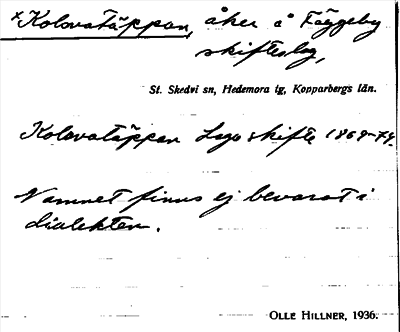 *Kolovatäppan, åker å Fäggeby
skifteslag,
St. Skedvi sn, Hedemora tg, Kopparbergs län.
Kolovatäppan Laga skifte 1869-74.
Namnet finns ej bevarat i
dialekten.
OLLE HILLNER, 1936.